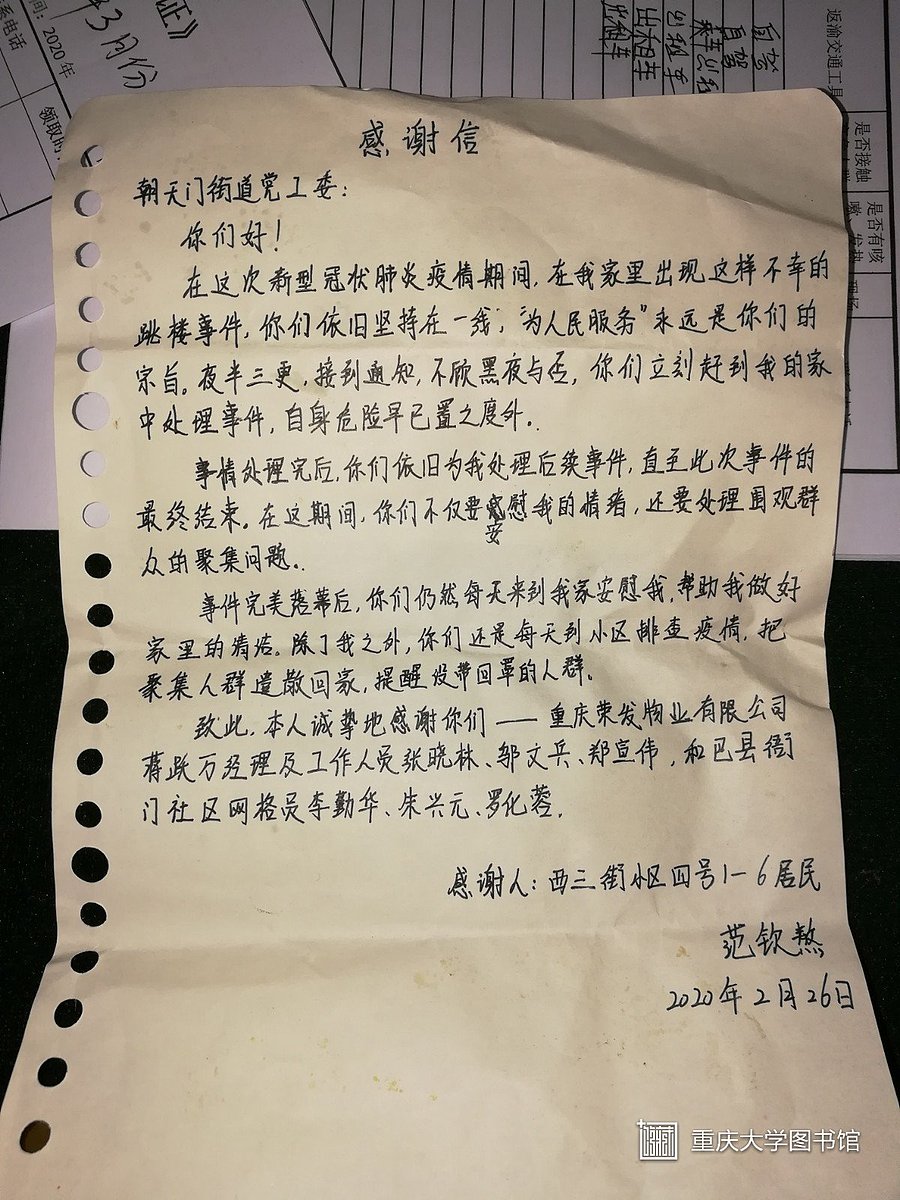 证》
3月份
间：2020年
系电话
领取时
返渝交通工具
是否接触
是否有咳
嗽、发热
自驾
自驾
出租车
出租车
出租车
感谢信
朝天门街道党工委：
你们好！
在这次新型冠状肺炎疫情期间，在我家里出现这样不幸的
跳楼事件，你们依旧坚持在一线，“为人民服务”永远是你们的
宗旨。夜半三更，接到通知，不顾黑夜与否，你们立刻赶到我的家
中处理事件，自身危险早已置之度外。
事情处理完后，你们依旧为我处理后续事件，直至此次事件的
最终结束。在这期间，你们不仅要安慰我的情绪，还要处理围观群
众的聚集问题。
事件完美落幕后，你们仍然每天来到我家安慰我，帮助我做好
家里的清洁。除了我之外，你们还是每天到小区排查疫情，把
聚集人群遣散回家，提醒没带回罩的人群。
致此，本人诚挚地感谢你们——重庆荣发物业有限公司
蒋跃万经理及工作人员张晓林、邬文兵、郑宣伟，和巴县衙
门社区网格员李勤华、朱兴元、罗化蓉。
感谢人：西三街小区四号1-6居民
范钦熬
2020年2月26日
重庆大学图书馆